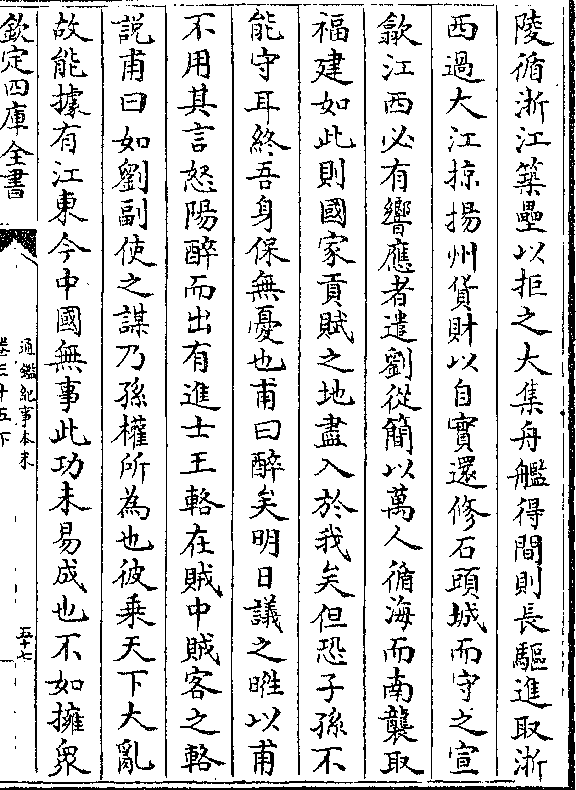 陵循浙江築壘以拒之大集舟艦得間則長驅進取浙
西過大江掠揚州貨財以自實還修石頭城而守之宣
歙江西必有響應者遣劉從簡以萬人循海而南襲取
福建如此則國家貢賦之地盡入於我矣但恐子孫不
能守耳終吾身保無憂也甫曰醉矣明日議之暀以甫
不用其言怒陽醉而出有進士王輅在賊中賊客之輅
說甫曰如劉副使之謀乃孫權所為也彼乗天下大亂
故能據有江東今中國無事此功未易成也不如擁衆
欽定四庫全書
通鑑紀事本末
卷三十五下
五十七